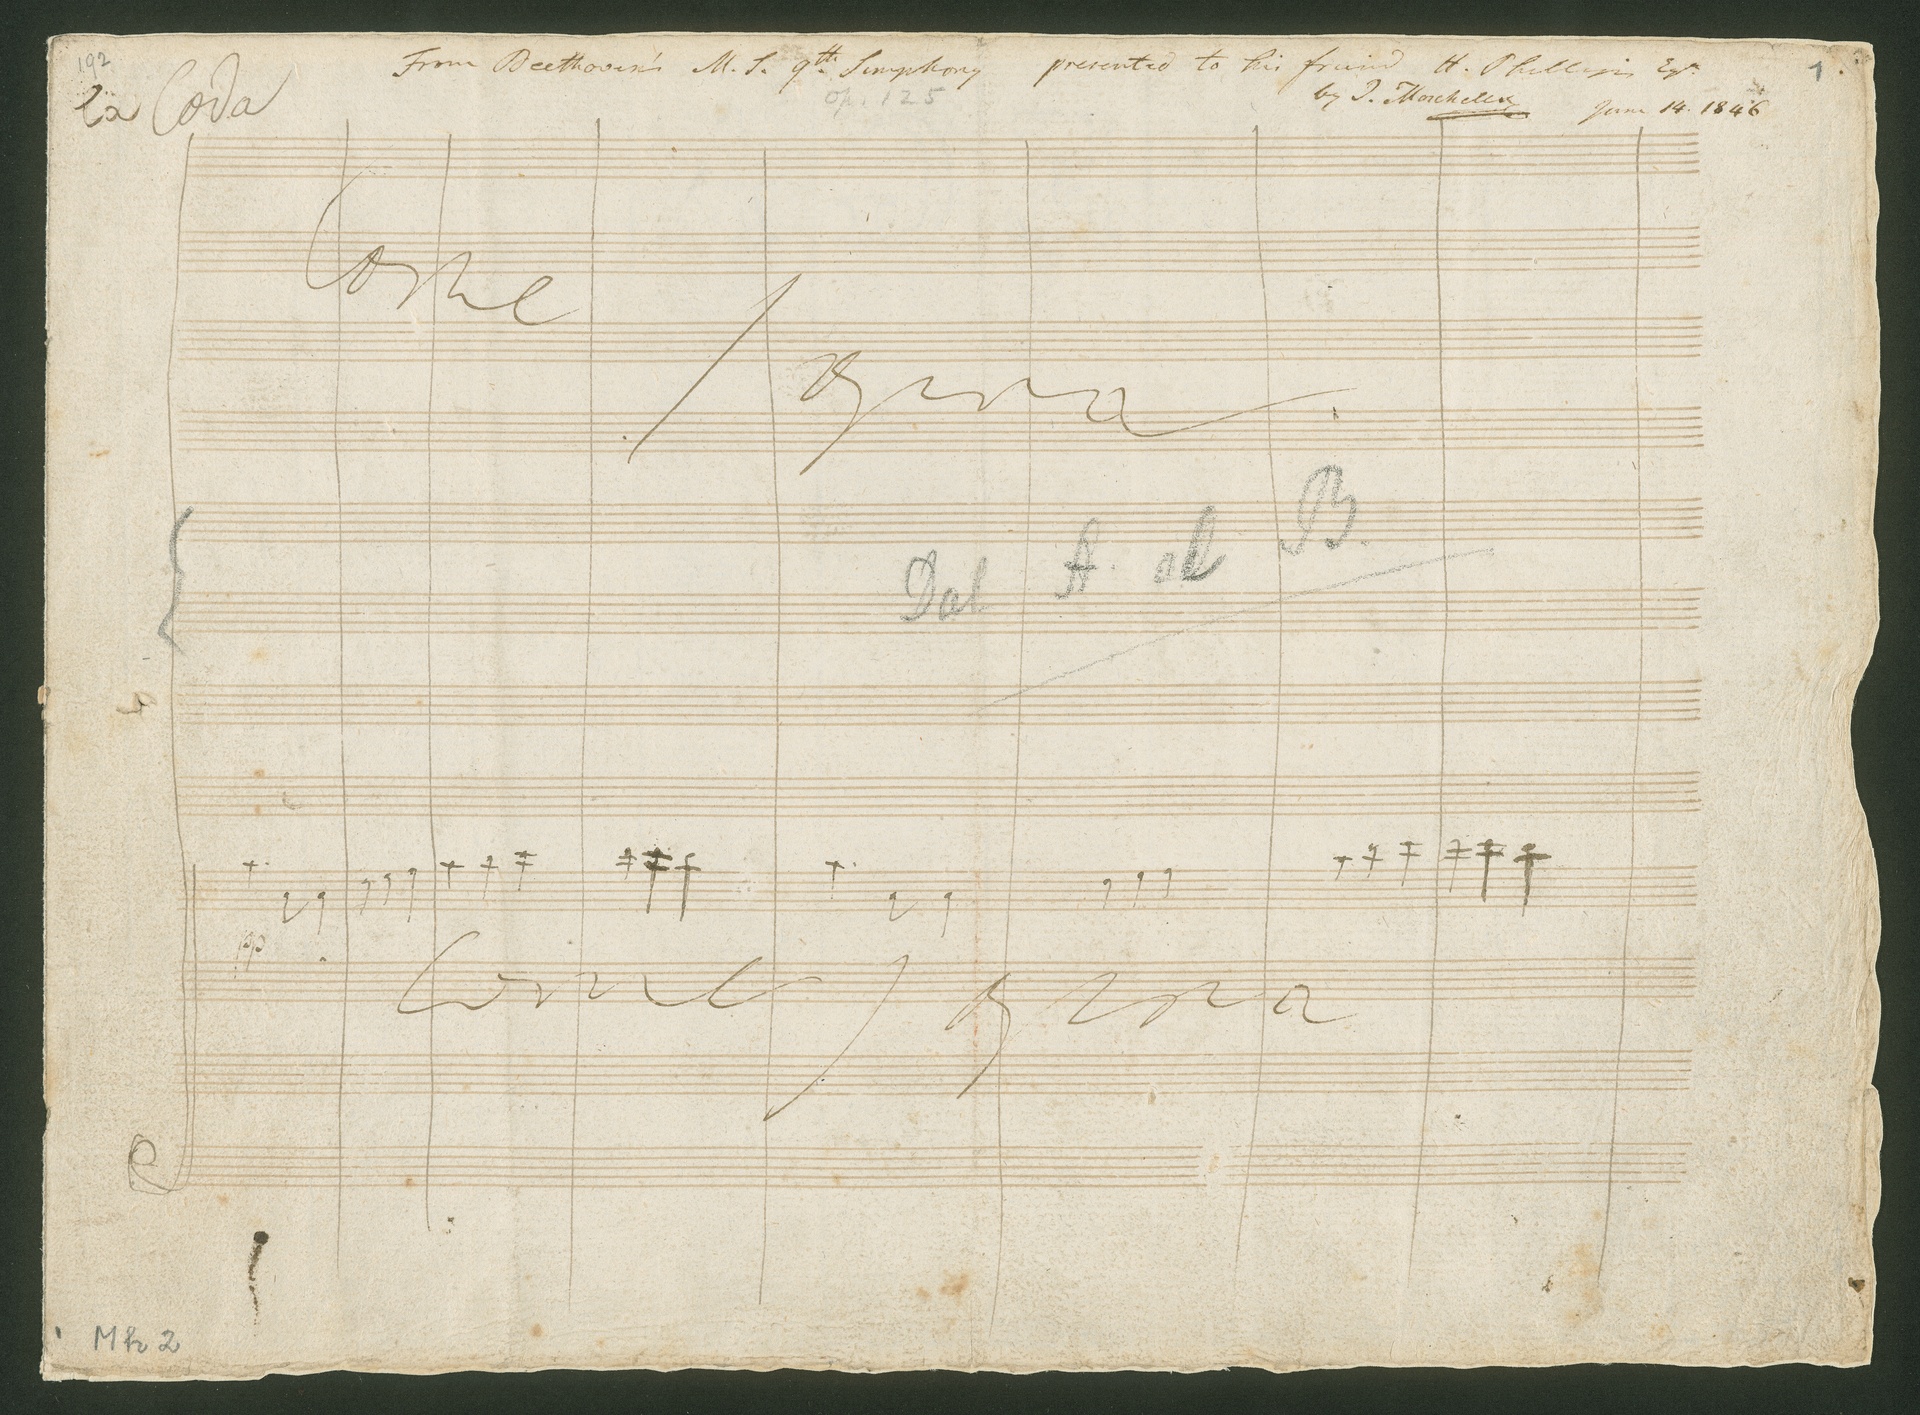 192
From Beethoven's M. S. 9th Simphony presented to his friend H. Phillips Esqr. 1.
La Coda
op. 125
by I. Moscheles June 14. 1846
Come
sopra
Dal A. al B.
pp
Come sopra
Mh 2